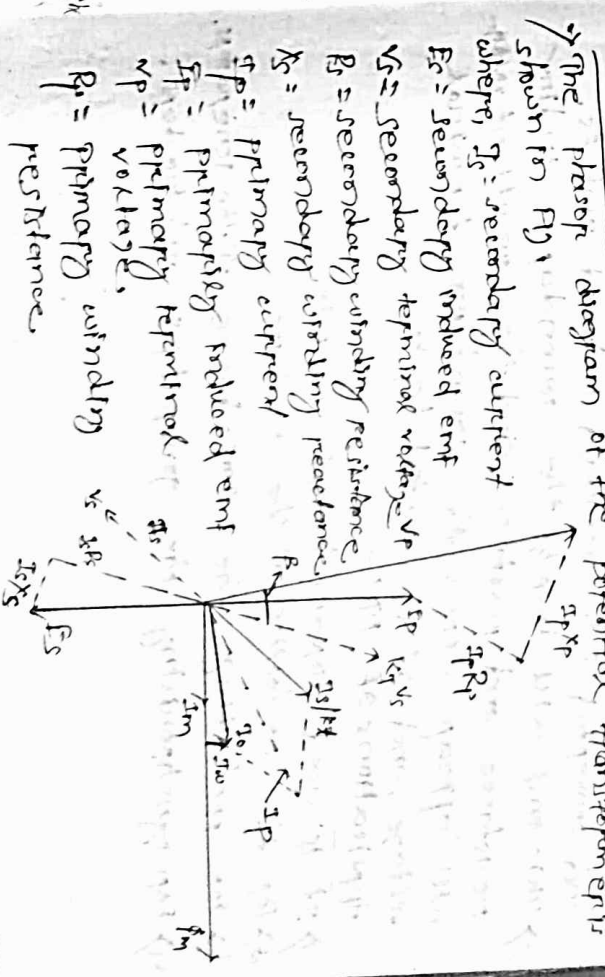 → The phasor diagram of the potential transformer is
shown in fig.
where, Is = secondary current
Es = secondary induced emf
Vs = secondary terminal voltage
Rs = secondary winding resistance
Xs = secondary winding reactance
Ip = primary current
Ep = primarily induced emf
Vp = primary terminal
voltage,
Rp = primary winding
resistance
Vp
IpXp
IpRp
Ep
β
KtVs
Is/Kt
Ip
Io
Iw
Im
Φm
Is
Vs
IsRs
IsXs
Es